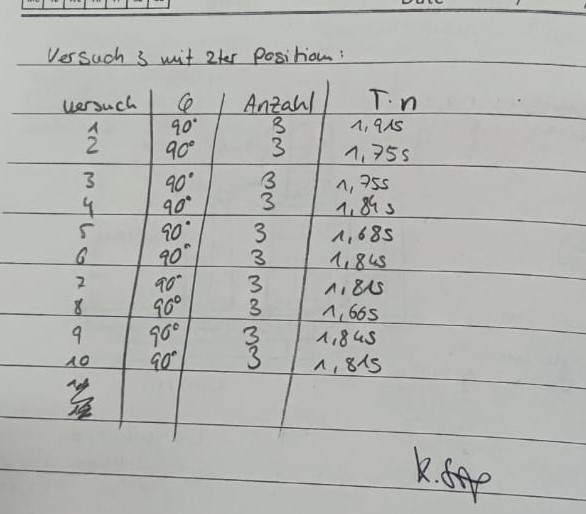 Date
Versuch 3 mit 2ter Position:
Versuch φ Anzahl T·n
1 90° 3 1,91s
2 90° 3 1,75s
3 90° 3 1,75s
4 90° 3 1,84s
5 90° 3 1,68s
6 90° 3 1,84s
7 90° 3 1,81s
8 90° 3 1,66s
9 90° 3 1,84s
10 90° 3 1,81s